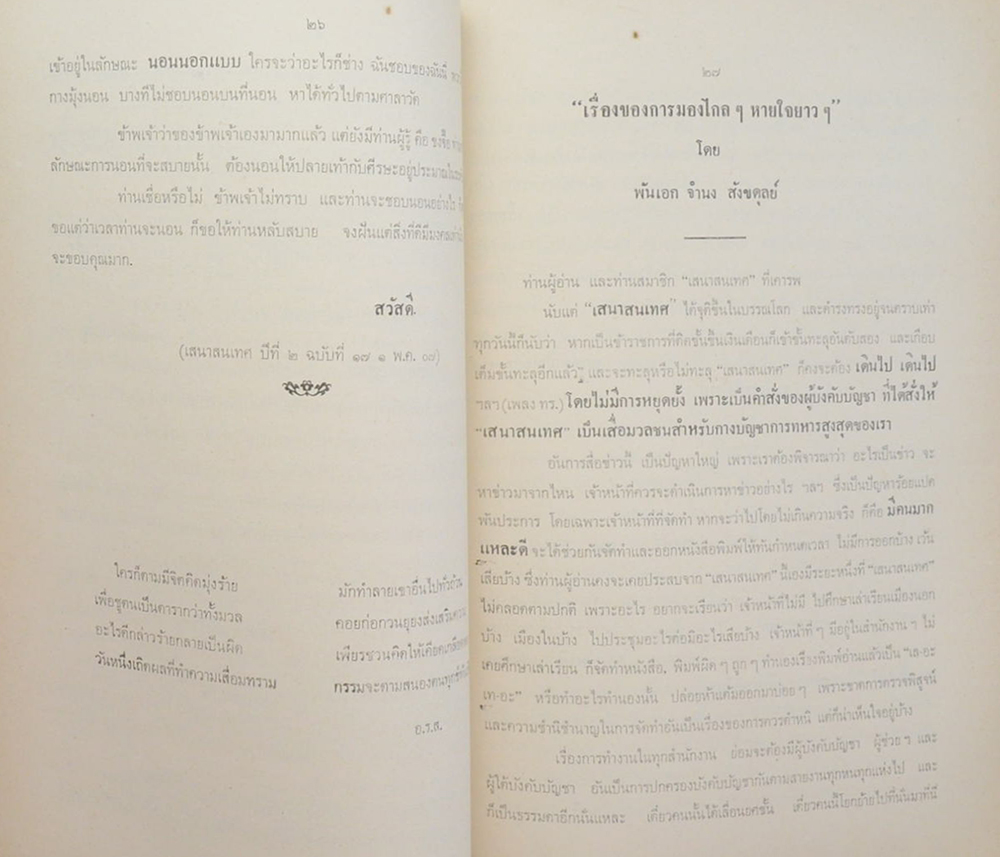 ๒๖
เข้าอยู่ในลักษณะ นอนนอกแบบ ใครจะว่าอะไรก็ช่าง ฉันชอบของฉันนี่
กางมุ้งนอน บางทีไม่ชอบนอนบนที่นอน หาได้ทั่วไปตามศาลาวัด
ข้าพเจ้าว่าของข้าพเจ้าเองมามากแล้ว แต่ยังมีท่านผู้รู้ คือ ขงจื๊อ
ลักษณะการนอนที่จะสบายนั้น ต้องนอนให้ปลายเท้ากับศีรษะอยู่ประมาณใน
ท่านเชื่อหรือไม่ ข้าพเจ้าไม่ทราบ และท่านจะชอบนอนอย่างไร
ขอแต่ว่าเวลาท่านจะนอน ก็ขอให้ท่านหลับสบาย จงฝันแต่สิ่งที่ดีมีมงคล
จะขอบคุณมาก.
สวัสดี.
(เสนาสนเทศ ปีที่ ๒ ฉบับที่ ๑๗ ๑ พ.ค. ๐๗)
ใครก็ตามมีจิตคิดมุ่งร้าย มักทำลายเขาอื่นไปทั่วถ้วน
เพื่อชูตนเป็นดารากว่าทั้งมวล คอยก่อกวนยุยงส่งเสริม
อะไรดีกล่าวร้ายกลายเป็นผิด เพียรชวนคิดให้เคียด
วันหนึ่งเกิดผลที่ทำความเสื่อมทราม กรรมจะตามสนองตน
อ.ร.ส.
๒๗
"เรื่องของการมองไกล ๆ หายใจยาว ๆ"
โดย
พันเอก จำนง สังขดุลย์
ท่านผู้อ่าน และท่านสมาชิก "เสนาสนเทศ" ที่เคารพ
นับแต่ "เสนาสนเทศ" ได้จุติขึ้นในบรรณโลก และดำรงทรงอยู่จนคราบเท่า
ทุกวันนี้ก็นับว่า หากเป็นข้าราชการที่คิดขั้นขึ้นเงินเดือนก็เข้าขั้นทะลุอันดับสอง และเกือบ
เต็มขั้นทะลุอีกแล้ว และจะทะลุหรือไม่ทะลุ "เสนาสนเทศ" ก็คงจะต้อง เดินไป เดินไป
ฯลฯ (เพลง ทร.) โดยไม่มีการหยุดยั้ง เพราะเป็นคำสั่งของผู้บังคับบัญชา ที่ได้สั่งให้
"เสนาสนเทศ" เป็นสื่อมวลชนสำหรับกางบัญชาการทหารสูงสุดของเรา
อันการสื่อข่าวนี้ เป็นปัญหาใหญ่ เพราะเราต้องพิจารณาว่า อะไรเป็นข่าว จะ
หาข่าวมาจากไหน เจ้าหน้าที่ควรจะดำเนินการหาข่าวอย่างไร ฯลฯ ซึ่งเป็นปัญหาร้อยแปด
พันประการ โดยเฉพาะเจ้าหน้าที่ที่จัดทำ หากจะว่าไปโดยไม่เกินความจริง ก็คือ มีคนมาก
แหละดี จะได้ช่วยกันจัดทำและออกหนังสือพิมพ์ให้ทันกำหนดเวลา ไม่มีการออกบ้าง เว้น
เสียบ้าง ซึ่งท่านผู้อ่านคงจะเคยประสบจาก "เสนาสนเทศ" นี้เองมีระยะหนึ่งที่ "เสนาสนเทศ"
ไม่คลอดตามปกติ เพราะอะไร อยากจะเรียนว่า เจ้าหน้าที่ไม่มี ไปศึกษาเล่าเรียนเมืองนอก
บ้าง เมืองในบ้าง ไปประชุมอะไรต่อมิอะไรเสียบ้าง เจ้าหน้าที่ ๆ มีอยู่ในสำนักงาน ๆ ไม่
เคยศึกษาเล่าเรียน ก็จัดทำหนังสือ, พิมพ์ผิด ๆ ถูก ๆ ทำนองเรื่องพิมพ์อ่านแล้วเป็น "เล-อะ
เท-อะ" หรือทำอะไรทำนองนั้น ปล่อยห้าแต้มออกมาบ่อย ๆ เพราะขาดการตรวจพิสูจน์
และความชำนิชำนาญในการจัดทำอันเป็นเรื่องของการควรตำหนิ แต่ก็น่าเห็นใจอยู่บ้าง
เรื่องการทำงานในทุกสำนักงาน ย่อมจะต้องมีผู้บังคับบัญชา ผู้ช่วย ฯ และ
ผู้ใต้บังคับบัญชา อันเป็นการปกครองบังคับบัญชากันตามสายงานทุกหนทุกแห่งไป และ
ก็เป็นธรรมดาอีกนั่นแหละ เดี๋ยวคนนั้นได้เลื่อนยศชั้น เดี๋ยวคนนี้โยกย้ายไปที่นั่นมาที่นี่